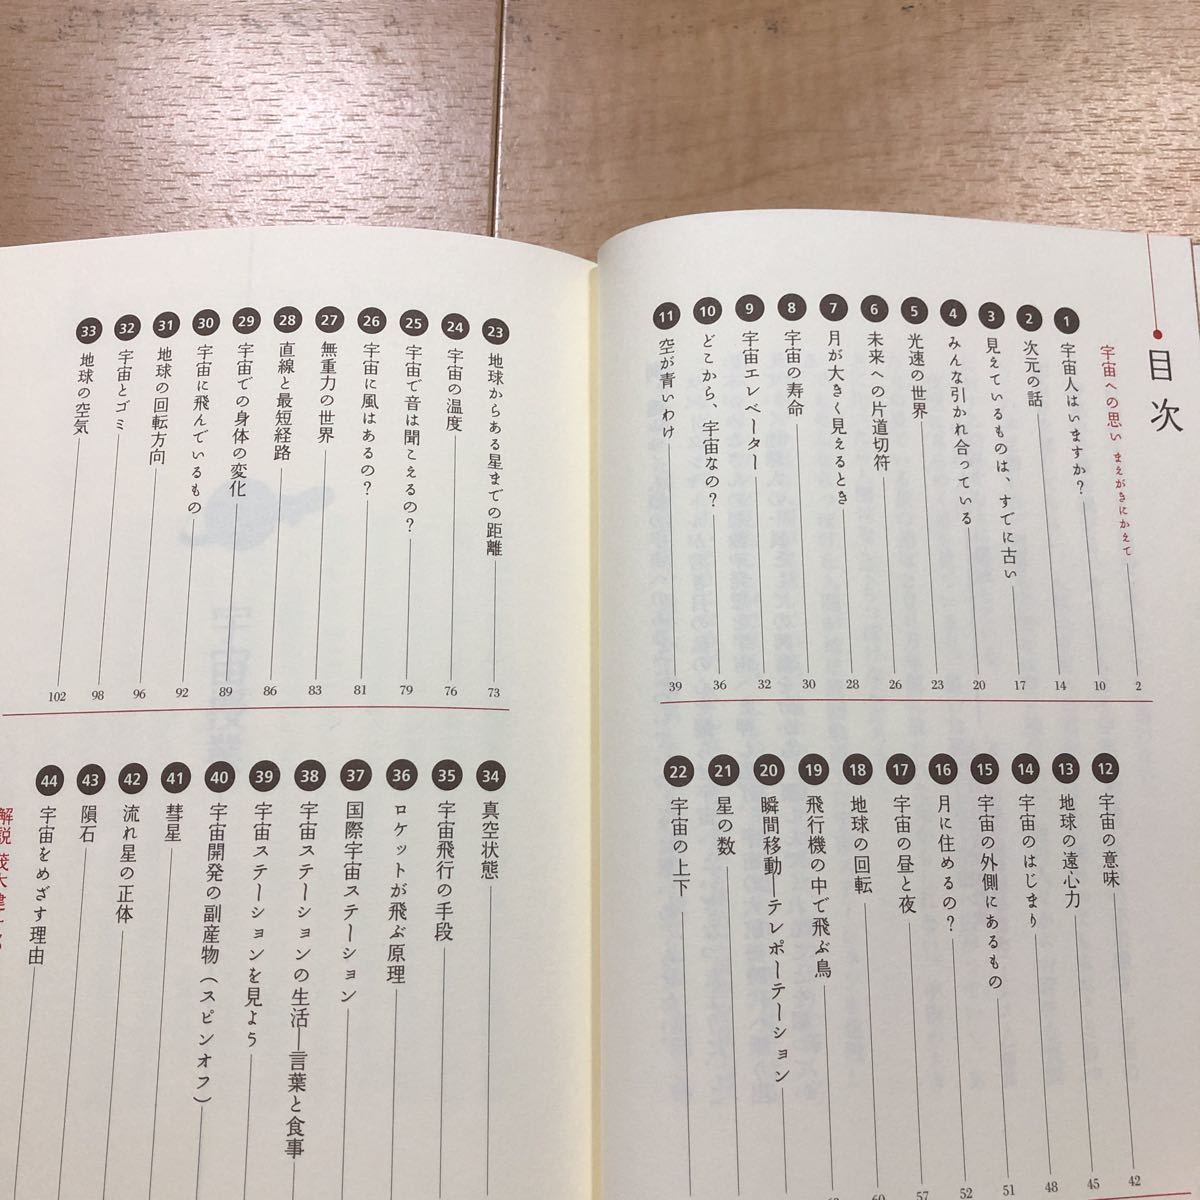 目次
宇宙への思い まえがきにかえて 2
1 宇宙人はいますか？ 10
2 次元の話 14
3 見えているものは、すでに古い 17
4 みんな引かれ合っている 20
5 光速の世界 23
6 未来への片道切符 26
7 月が大きく見えるとき 28
8 宇宙の寿命 30
9 宇宙エレベーター 32
10 どこから、宇宙なの？ 36
11 空が青いわけ 39
12 宇宙の意味 42
13 地球の遠心力 45
14 宇宙のはじまり 48
15 宇宙の外側にあるもの 51
16 月に住めるの？ 52
17 宇宙の昼と夜 57
18 地球の回転 60
19 飛行機の中で飛ぶ鳥
20 瞬間移動―テレポーテーション
21 星の数
22 宇宙の上下
23 地球からある星までの距離 73
24 宇宙の温度 76
25 宇宙で音は聞こえるの？ 79
26 宇宙に風はあるの？ 81
27 無重力の世界 83
28 直線と最短経路 86
29 宇宙での身体の変化 89
30 宇宙に飛んでいるもの 92
31 地球の回転方向 96
32 宇宙とゴミ 98
33 地球の空気 102
34 真空状態
35 宇宙飛行の手段
36 ロケットが飛ぶ原理
37 国際宇宙ステーション
38 宇宙ステーションの生活―言葉と食事
39 宇宙ステーションを見よう
40 宇宙開発の副産物（スピンオフ）
41 彗星
42 流れ星の正体
43 隕石
44 宇宙をめざす理由
解説 茂木健一郎